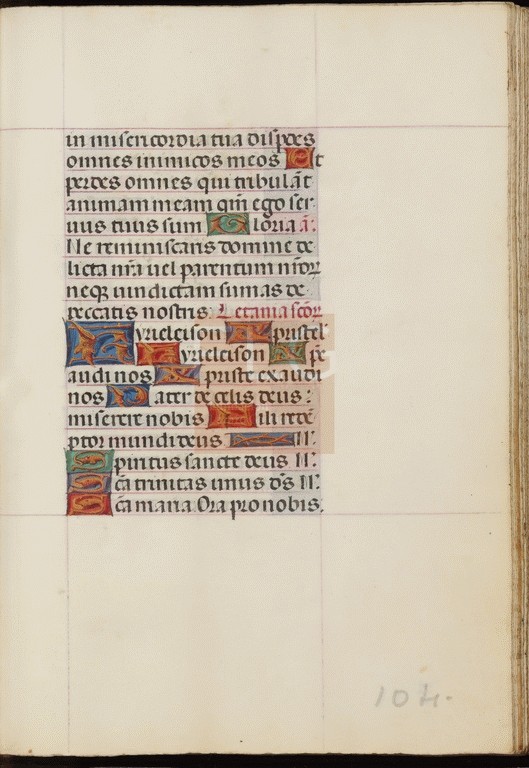 in misericordia tua disp̱des
omnes inimicos meos Et
perdes omnes qui tribulāt
animam meam qm̄ ego ser
uus tuus sum Gloria a:
Ne reminiscaris domine de
licta nr̄a uel parentum nr̄oꝝ
neqꝫ uindictam sumas de
peccatis nostris Letania scōꝝ
Kyrieleison Xpristel
Kyrieleison Xpē
audi nos Xpriste exaudi
nos Pater de celis deus:
miserere nobis Fili redē
ptor mundi deus M:
Spiritus sancte deus M:
Scā trinitas unus dS̄ M:
Scā maria Ora pro nobis.
104.